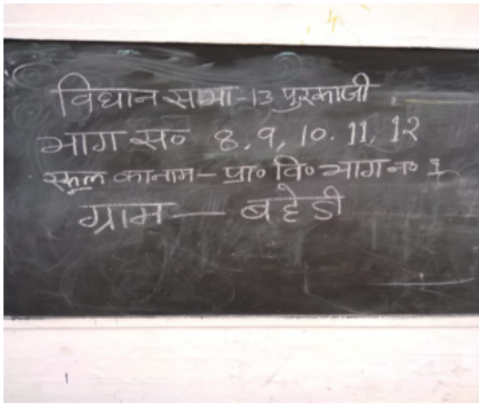 विधान सभा-13 पुरकाजी
भाग स० 8, 9, 10. 11, 12
स्कूल का नाम- प्रा० वि० भाग न० 1
ग्राम — बहेडी